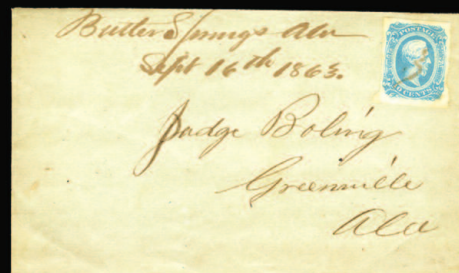 Butler Springs Ala
Sept 16th 1863.
POSTAGE
CENTS
Judge Boling
Greenville
Ala